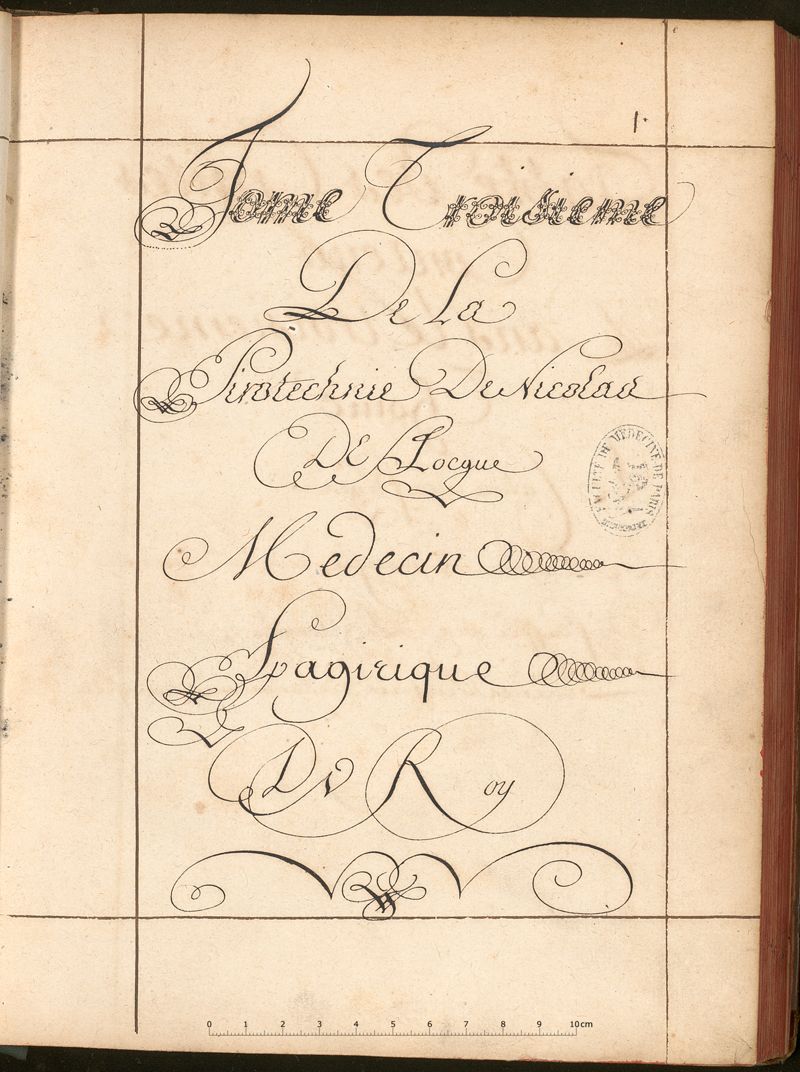 1.
Tome Troisieme
De La
Pirotechnie De Nicolas
De Locque
Medecin
Spagirique
Dv Roy
FACULTÉ DE MEDECINE DE PARIS
0 1 2 3 4 5 6 7 8 9 10cm